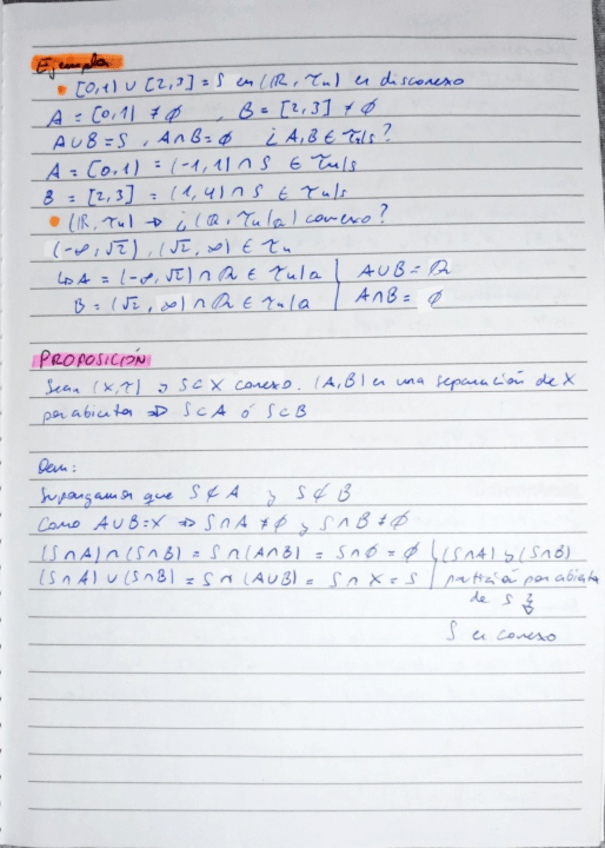 Ejemplos
• [0,1) ∪ [2,3] = S en (ℝ, τu) es disconexo
A = [0,1) ≠ ∅ , B = [2,3] ≠ ∅
A∪B = S , A∩B = ∅ ¿A,B ∈ τu|s?
A = [0,1) = (-1,1) ∩ S ∈ τu|s
B = [2,3] = (1,4) ∩ S ∈ τu|s
• (ℝ, τu) → ¿(ℚ, τu|ℚ) conexo?
(-∞, √2), (√2, ∞) ∈ τu
↳ A = (-∞, √2) ∩ ℚ ∈ τu|ℚ | A∪B = ℚ
B = (√2, ∞) ∩ ℚ ∈ τu|ℚ | A∩B = ∅
PROPOSICIÓN
Sean (X,τ) y S⊂X conexo. (A,B) es una separación de X
por abiertos ⇒ S⊂A ó S⊂B
Dem:
Supongamos que S⊄A y S⊄B
Como A∪B=X ⇒ S∩A ≠ ∅ y S∩B ≠ ∅
(S∩A)∩(S∩B) = S∩(A∩B) = S∩∅ = ∅ | (S∩A) y (S∩B)
(S∩A)∪(S∩B) = S∩(A∪B) = S∩X = S | partición por abiertos
de S
S es conexo